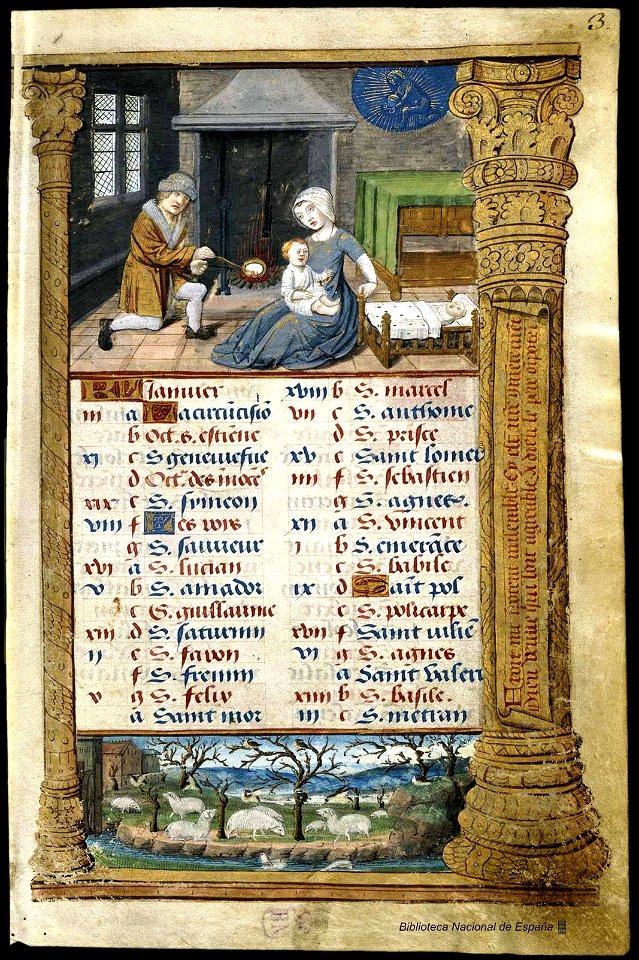 3
Janvier
iii a La circũcisiõ
b Oct. s. estiene
xi c S genevefue
d Oct. des inocẽs
xix e S. symeon
viii f Les rois
g S. sauveur
xvi a S. lucian
v b S. amador
c S. guillaume
xiii d S. saturnin
ii e S. favon
f S. fremin
v g S. felix
a Saint mor
xviii b S. marcel
vii c S. anthoine
d S. prisce
xv e Saint lomer
iiii f S. sebastien
g S. agnes.
xii a S. vincent
i b S. emerãce
c S. babile
ix d Saĩt pol
e S. policarpe
xvii f Saint iuliẽ
vi g S. agnes
a Saint valeri
xiiii b S. basile.
iii c S. metran
Biblioteca Nacional de España